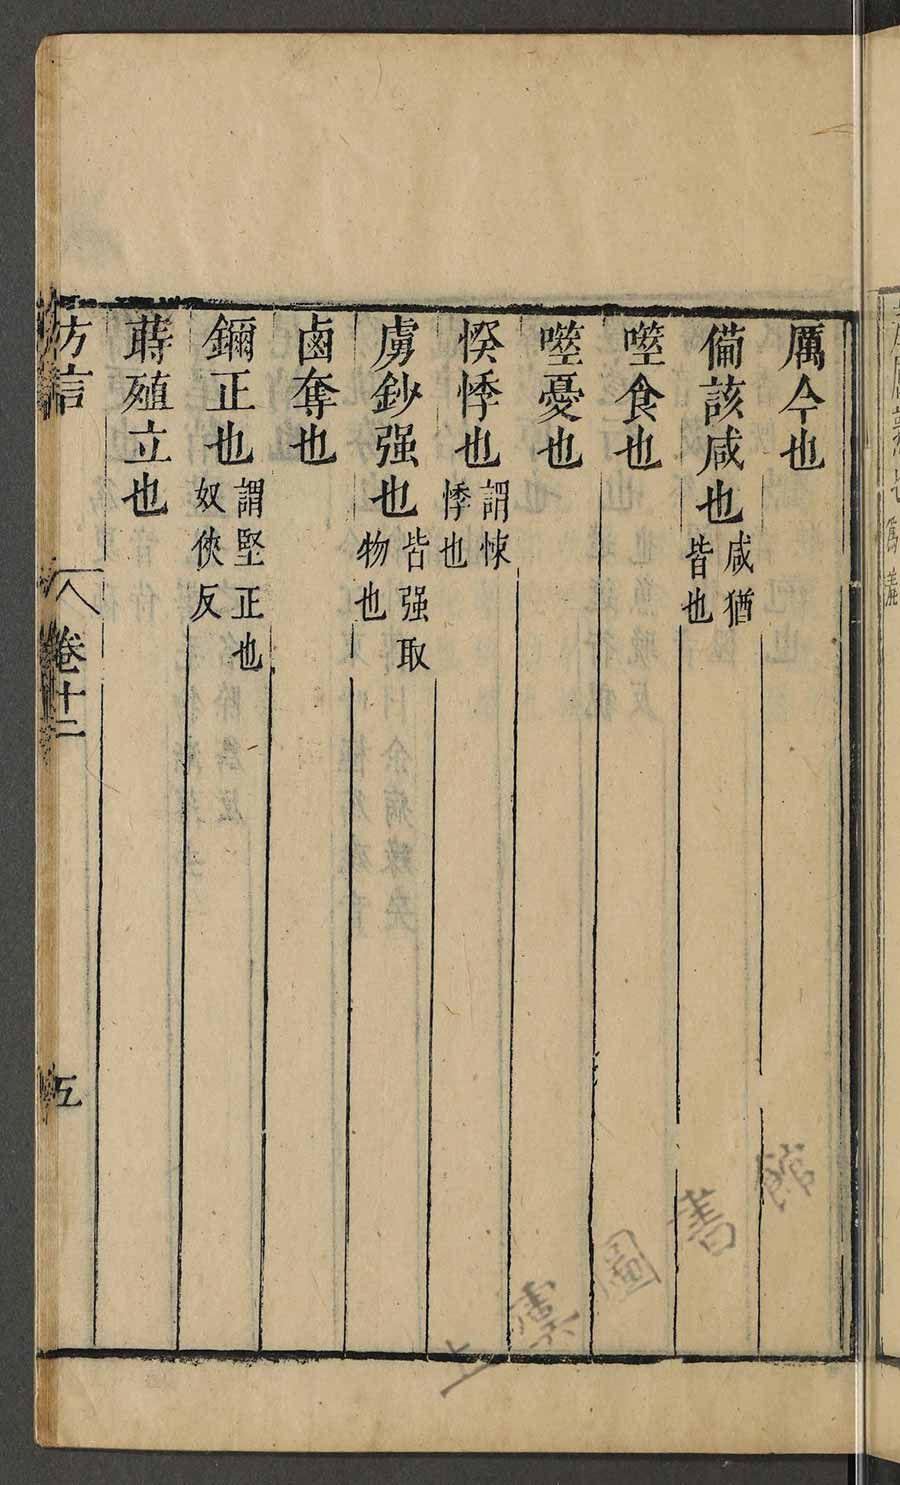 厲今也
備該咸也咸猶皆也
噬食也
噬憂也
㥍悸也謂悚悸也
虜鈔强也皆强取物也
鹵奪也
鑈正也謂堅正也奴俠反
蒔殖立也
方言
卷十二
五
上虞圖書館